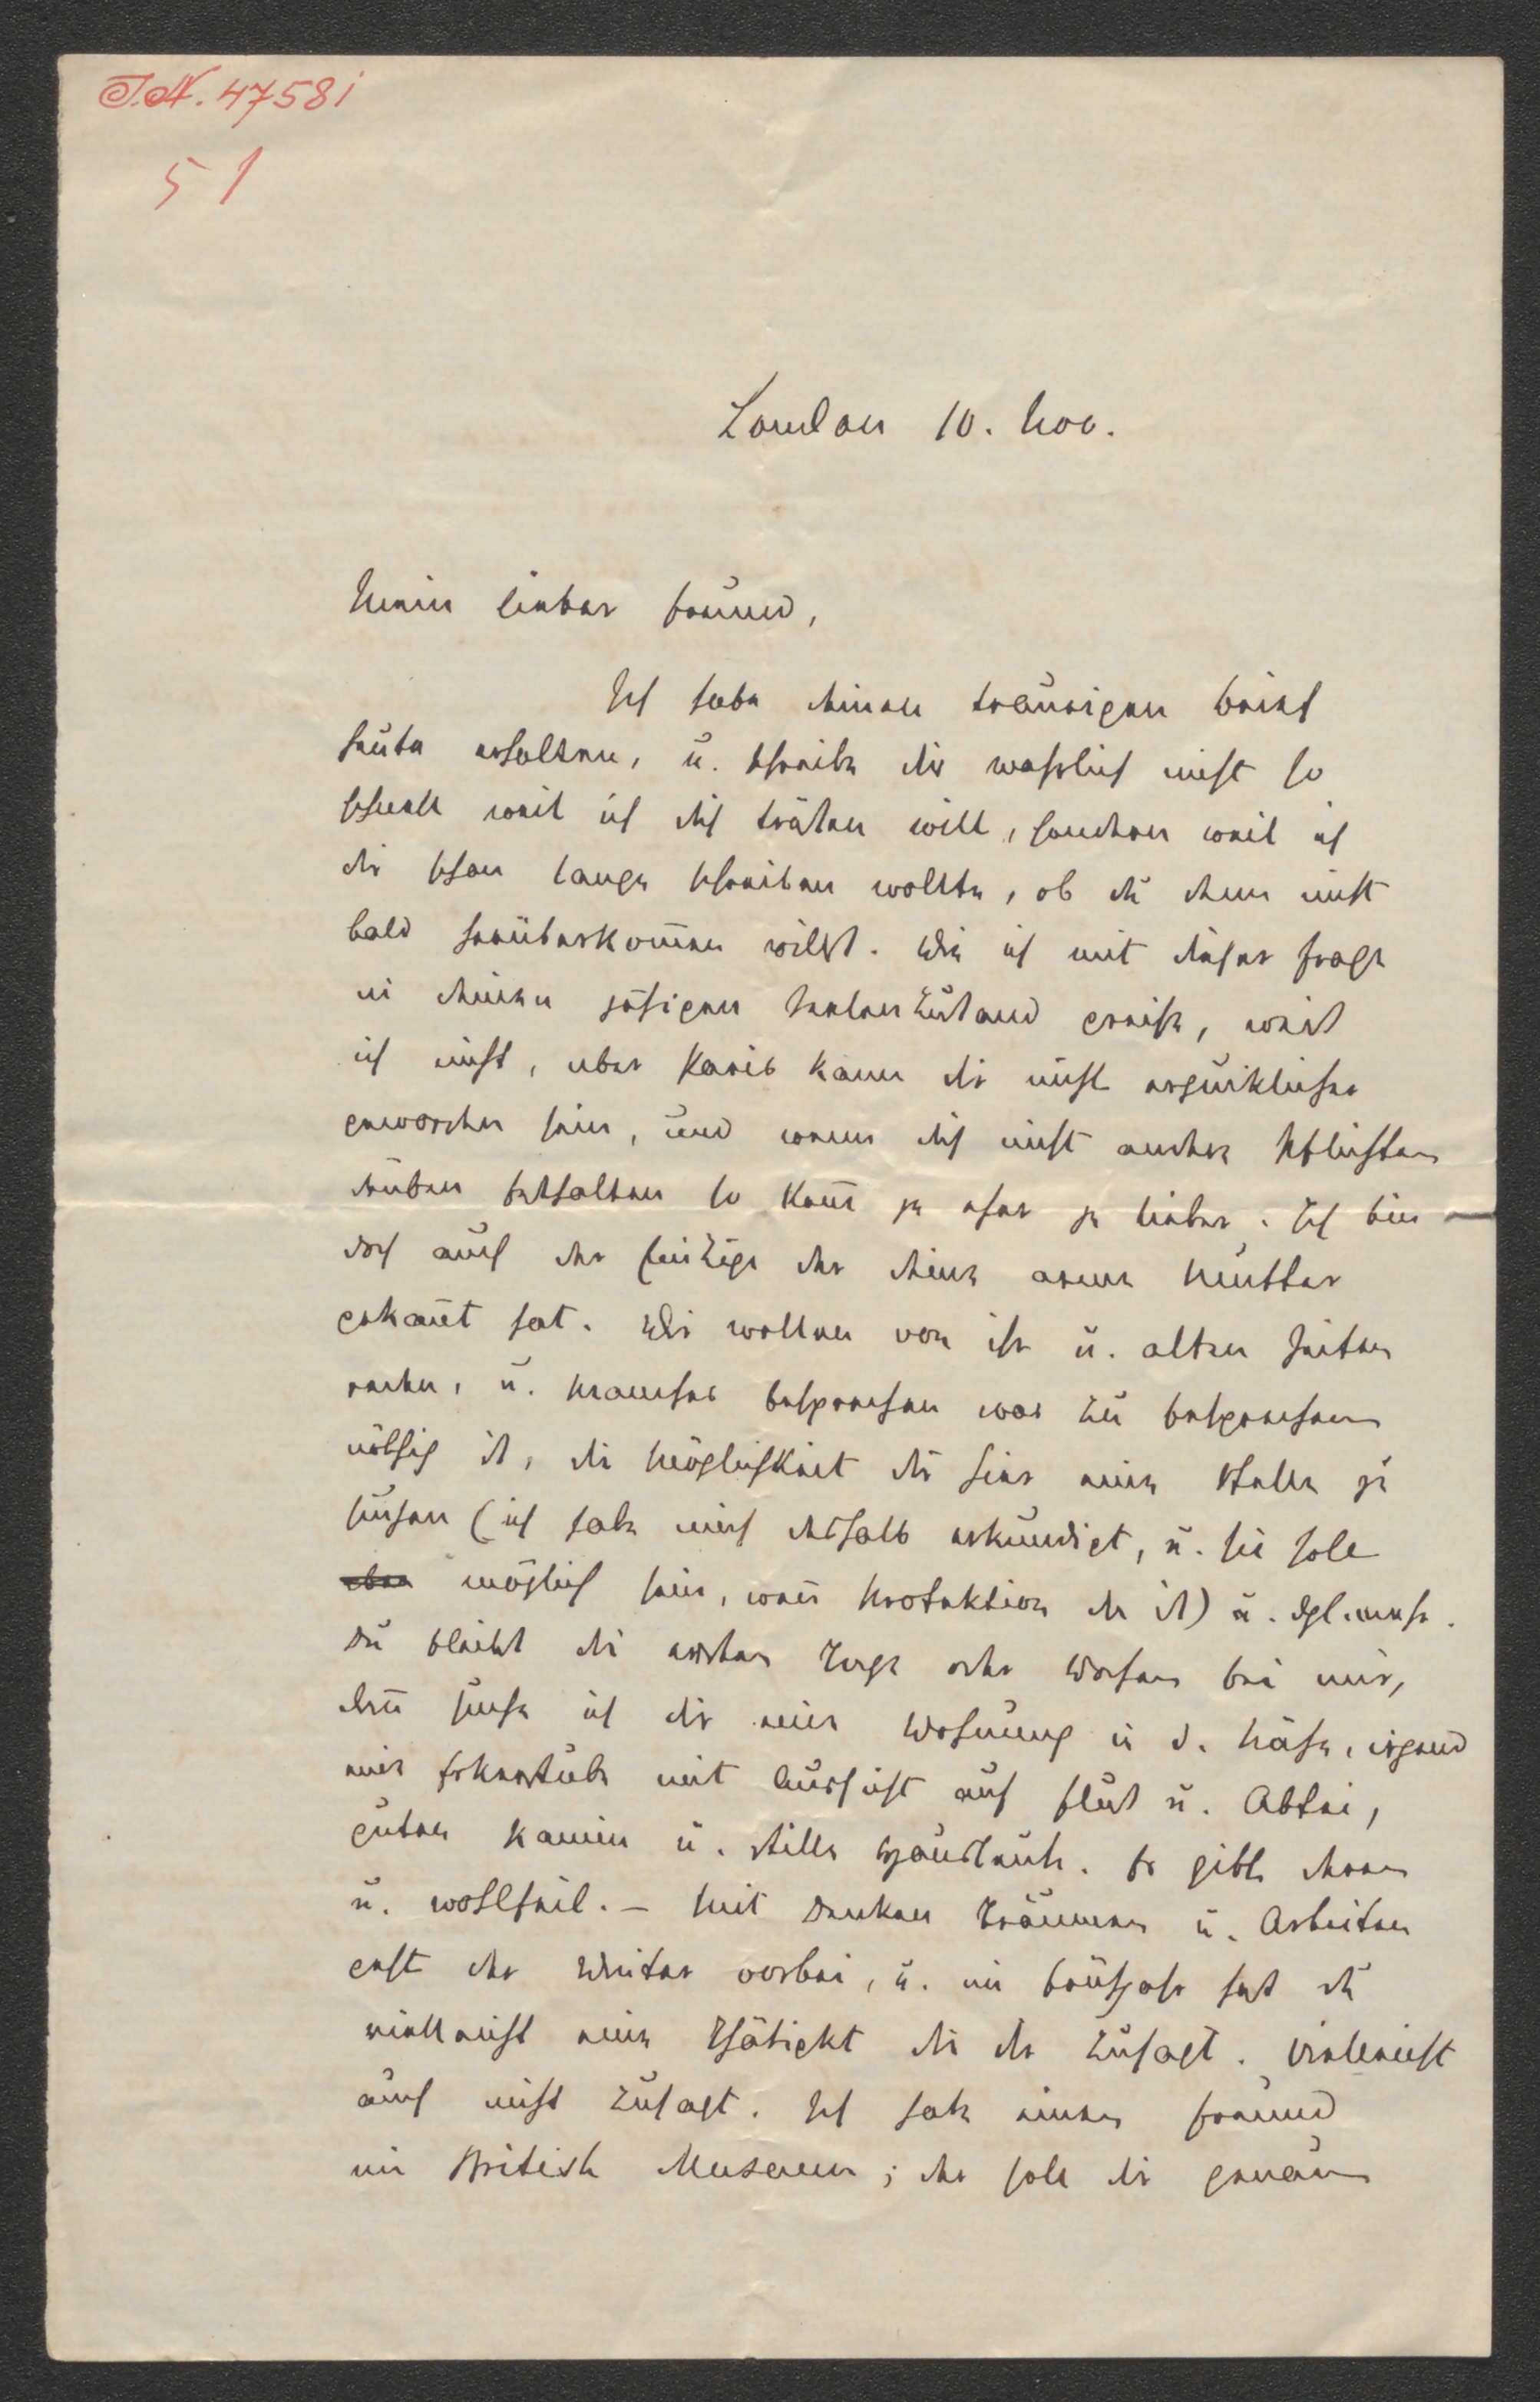 I.N. 47581
51
London 10. Nov.
Mein lieber Freund,
Ich habe deinen traurigen Brief
heute erhalten, u. schreibe dir wahrlich nicht so
schnell weil ich dich trösten will, sondern weil ich
dir schon lange schreiben wollte, ob du denn nicht
bald herüberkom̄en willst. Wie ich mit dieser Frage
in deinen jetzigen Seelenzustand greife, weiß
ich nicht, aber Paris kann dir nicht erquicklicher
geworden sein, und wenn dich nicht andere Pflichten
drüben festhalten so kom̄ je eher je lieber. Ich bin
doch auch der Einzige der deine arme Mutter
gekan̄t hat. Wir wollen von ihr u. alten Zeiten
reden, u. Manches besprechen was zu besprechen
nöthig ist, die Möglichkeit dir hier eine Stelle zu
suchen (ich habe mich deshalb erkundigt, u. sie soll
möglich sein, wen̄ Protektion da ist) u. dgl. mehr.
Du bleibst die ersten Tage oder Wochen bei mir,
dan̄ suche ich dir eine Wohnung in d. Nähe, irgend
eine Erkerstube mit Aussicht auf Fluß u. Abtei,
guten Kamin u. stille Hausleute. Es gibt deren
u. wohlfeil. – Mit Denken Träumen u. Arbeiten
geht der Winter vorbei, u. im Frühjahr hast du
vielleicht eine Thätigkt die dir zusagt. Vielleicht
auch nicht zusagt. Ich habe einen Freund
im British Museum; der soll dir genau